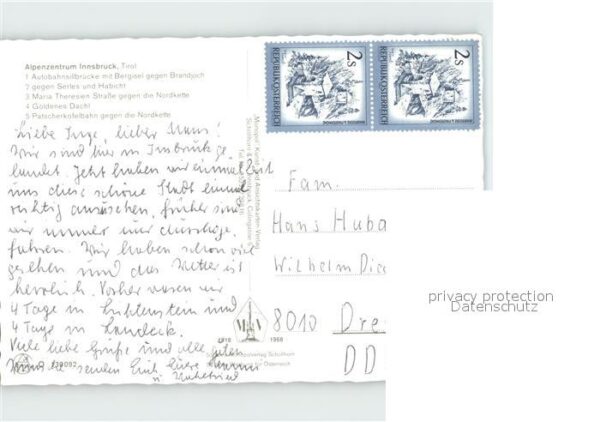 Alpenzentrum Innsbruck, Tirol
1 Autobahnsillbrücke mit Bergisel gegen Brandjoch
2 gegen Serles und Habicht
3 Maria Theresien Straße gegen die Nordkette
4 Goldenes Dachl
5 Patscherkofelbahn gegen die Nordkette
Liebe Inge, lieber Hans!
Wir sind hier in Innsbruck ge-
landet. Jetzt haben wir einmal Zeit
uns diese schöne Stadt einmal
richtig anzusehen, früher sind
wir immer nur durchge-
fahren. Wir haben schon viel
gesehen und das Wetter ist
herrlich. Vorher waren wir
4 Tage in Lichtenstein und
4 Tage in Landeck.
Viele liebe Grüße und alle guten
senden Euch
u.
2s
REPUBLIK ÖSTERREICH
2s
REPUBLIK ÖSTERREICH
Fam.
Hans Huba
Wilhelm Die
8010 Dre
DD
1918 1968
privacy protection
Datenschutz